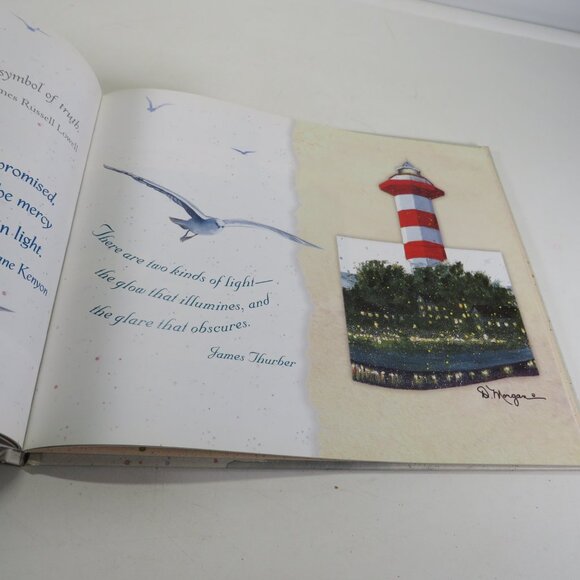 symbol of truth.
James Russell Lowell
promised,
be mercy
n light.
ane Kenyon
There are two kinds of light—
the glow that illumines, and
the glare that obscures.
James Thurber
D. Morgan